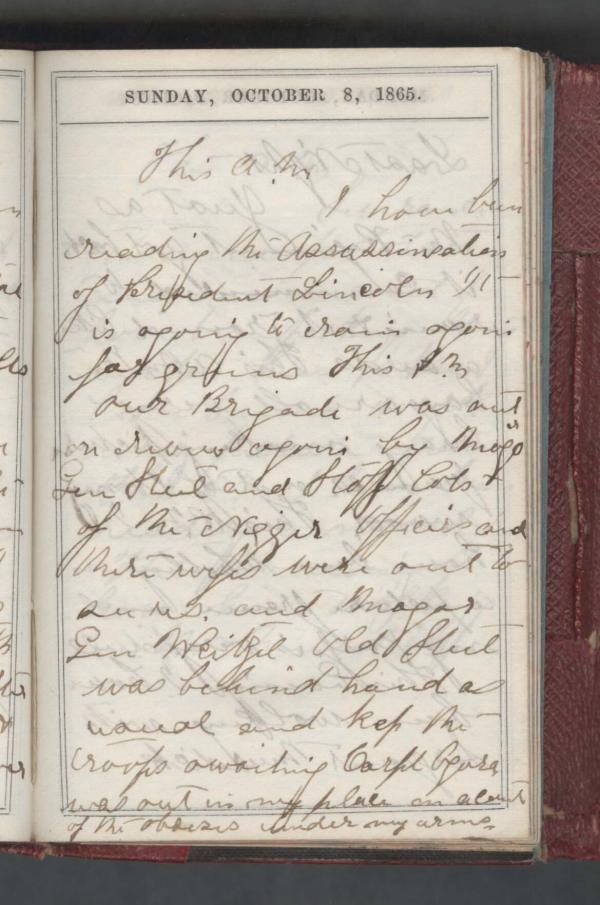 SUNDAY, OCTOBER 8, 1865.
This A.M.
I have been
reading the Assassination
of President Lincoln It
is agoing to rain again
for grains This P.M
our Brigade was out
on review again by Magor
Gen Steel and Staff Lots
of the Nigger Officers and
there wifes were out to
see us. and Magor
Gen Weitzel Old Steel
was behind hand as
usual and kep the
troops awaiting Corpl Ogara
was out in my place on acount
of the under my arms